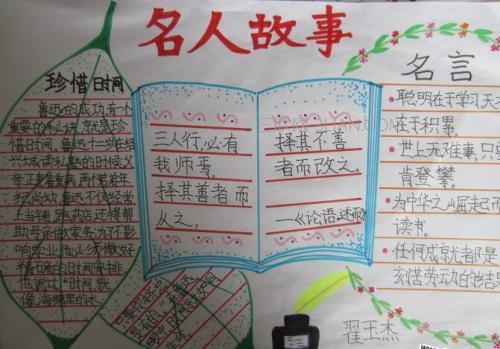 名人故事
珍惜时间
鲁迅的成功,有个
重要的秘诀,就是珍
惜时间。鲁迅十二岁在绍
兴城读私塾的时候,父
亲正患着重病,两个弟弟
年纪尚幼,鲁迅不仅经常
上当铺,跑药店,还得帮
助母亲做家务;为不影
响学业,他必须做好
精确的时间安排
三人行,必有
我师焉,
择其善者而
从之,
择其不善
者而改之。
—《论语·述而》
名言
聪明在于学习,天
在于积累。
世上无难事,只要
肯登攀。
为中华之崛起而
读书。
任何成就都是
刻苦劳动的结
翟玉杰